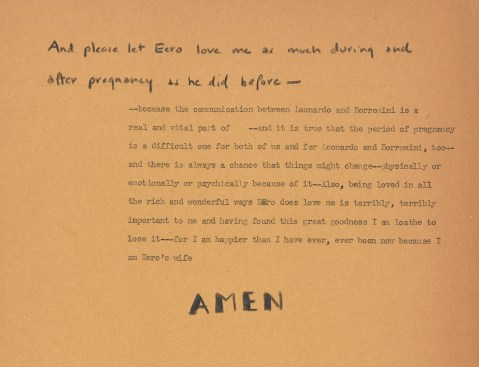 And please let Eero love me as much during and
after pregnancy as he did before —
--because the communication between Leonardo and Borromini is a
real and vital part of --and it is true that the period of pregnancy
is a difficult one for both of us and for Leonardo and Borromini, too--
and there is always a chance that things might change--physically or
emotionally or psychically because of it--Also, being loved in all
the rich and wonderful ways Eero does love me is terribly, terribly
important to me and having found this great goodness I am loathe to
lose it---for I am happier than I have ever, ever been now because I
am Eero's wife
AMEN